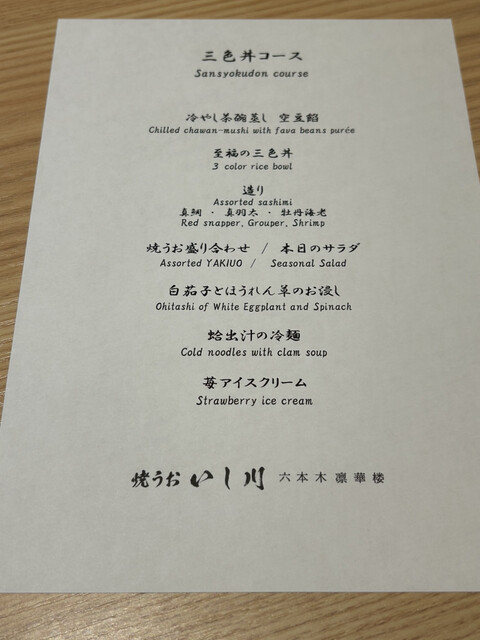 三色丼コース
Sansyokudon course
冷やし茶碗蒸し 空豆餡
Chilled chawan-mushi with fava beans purée
至福の三色丼
3 color rice bowl
造り
Assorted sashimi
真鯛 ・ 真羽太 ・ 牡丹海老
Red snapper, Grouper, Shrimp
焼うお盛り合わせ / 本日のサラダ
Assorted YAKIUO / Seasonal Salad
白茄子とほうれん草のお浸し
Ohitashi of White Eggplant and Spinach
蛤出汁の冷麺
Cold noodles with clam soup
苺アイスクリーム
Strawberry ice cream
焼うお いし川 六本木 凛華楼